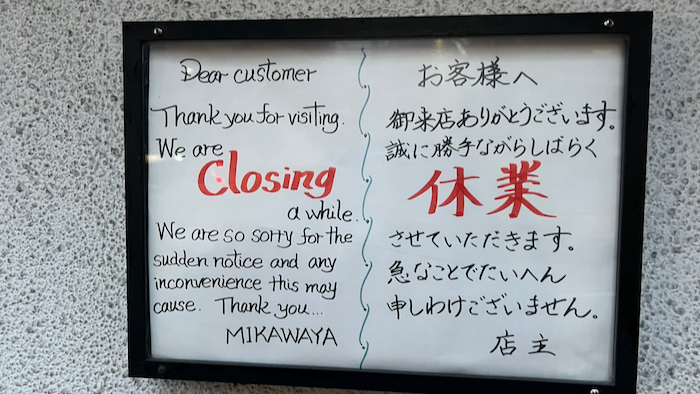 Dear customer
Thank you for visiting.
We are
Closing
a while.
We are so sorry for the
sudden notice and any
inconvenience this may
cause. Thank you...
MIKAWAYA
お客様へ
御来店ありがとうございます。
誠に勝手ながらしばらく
休業
させていただきます。
急なことでたいへん
申しわけございません。
店主